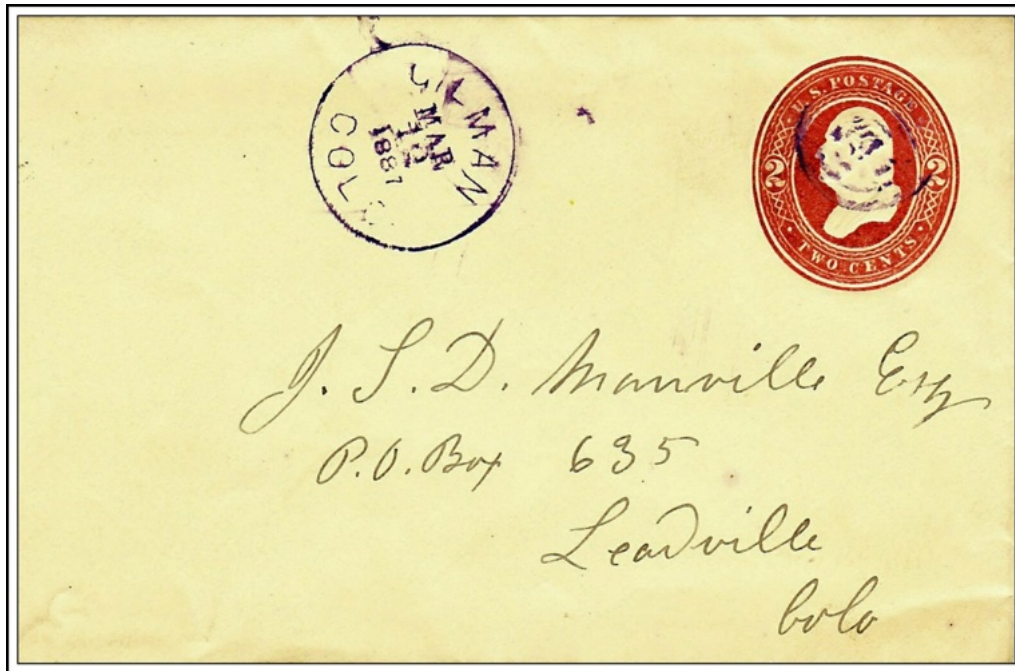 GILMAN
MAR
1887
COLO
U.S. POSTAGE
2 2
TWO CENTS
J. S. D. Manville Esq
P.O. Box 635
Leadville
Colo